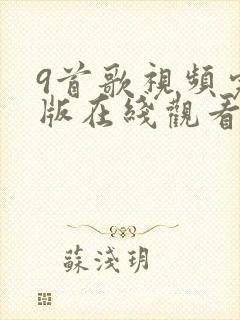 9首歌視頻
版在綫觀看
蘇淺玥